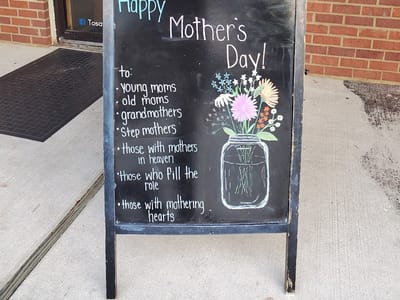 Happy
Mother's
Day!
to:
• young moms
• old moms
• grandmothers
• step mothers
• those with mothers
in heaven
• those who fill the
role
• those with mothering
hearts